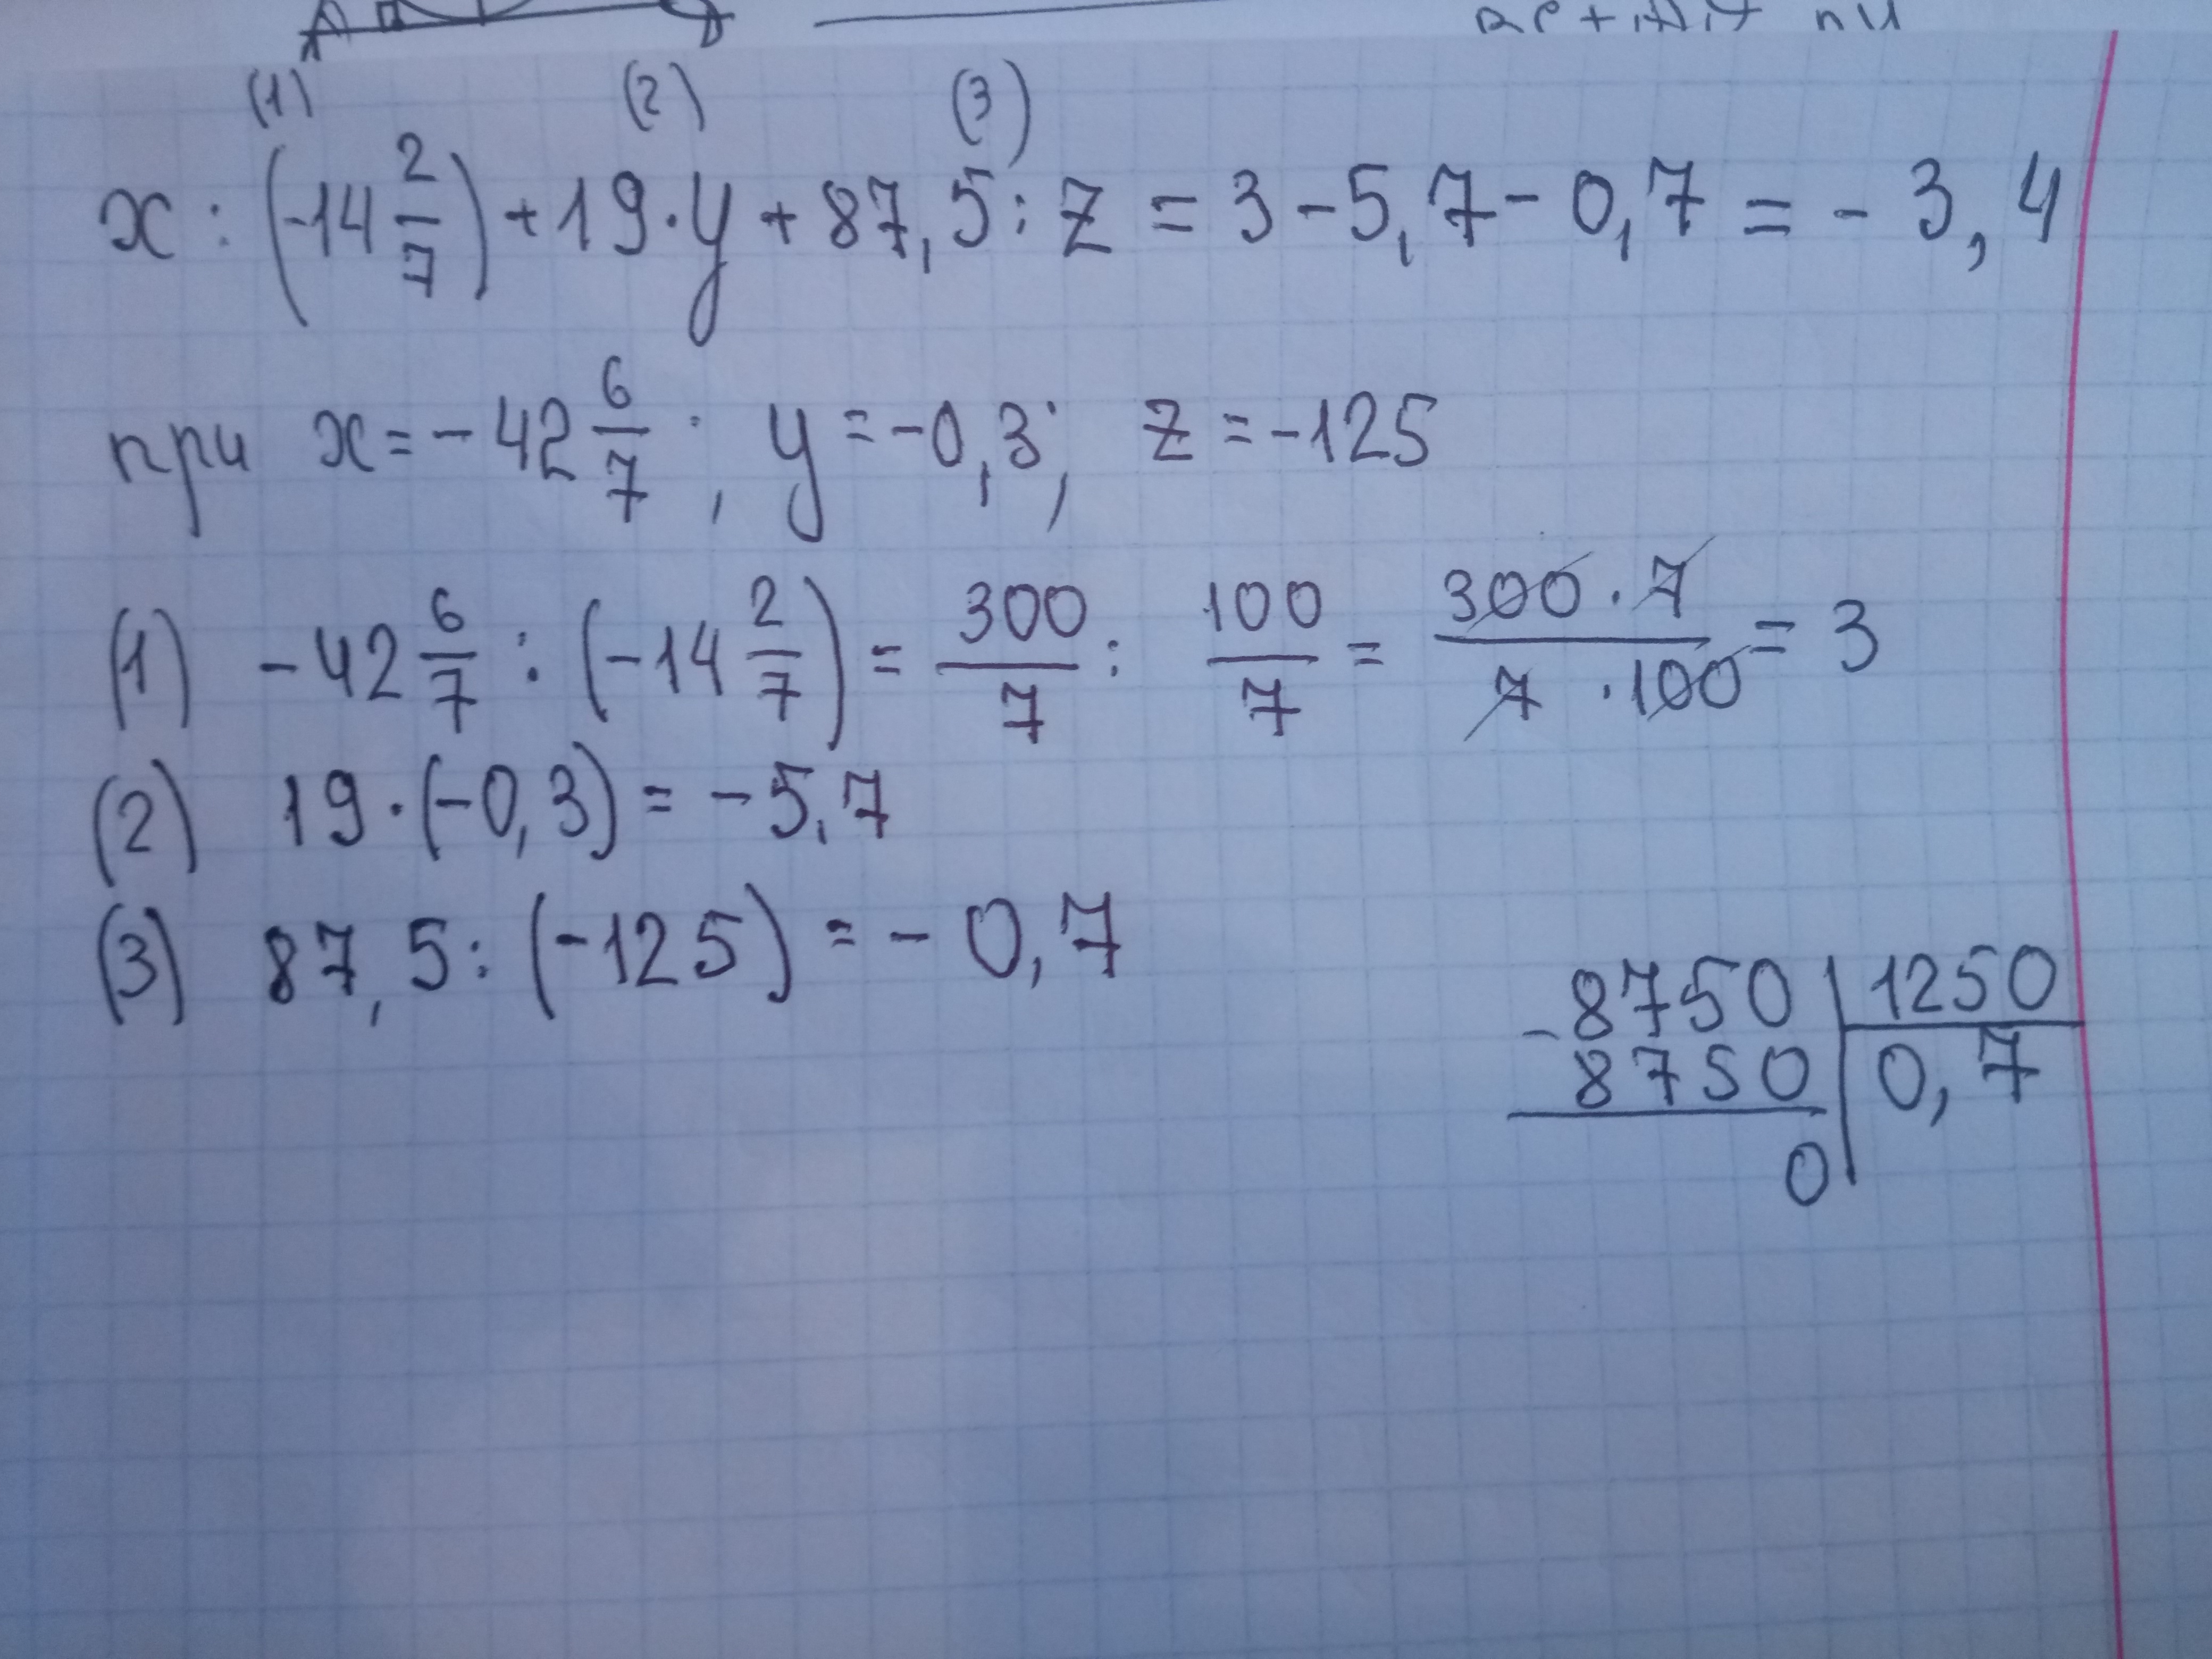 (1) (2) (3)
x : (-14 2/7) + 19 · y + 87,5 : z = 3 - 5,7 - 0,7 = - 3,4
при x = - 42 6/7 ; y = -0,3; z = -125
(1) - 42 6/7 : (-14 2/7) = 300/7 : 100/7 = 300 · 7 / 7 · 100 = 3
(2) 19 · (-0,3) = - 5,7
(3) 87,5 : (-125) = - 0,7
- 8750 | 1250
8750 | 0,7
0